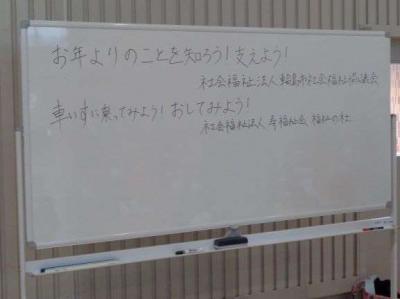 お年よりのことを知ろう!支えよう!
社会福祉法人 輪島市社会福祉協議会
車いすに乗ってみよう!おしてみよう!
社会福祉法人 寿福祉会 福祉の杜